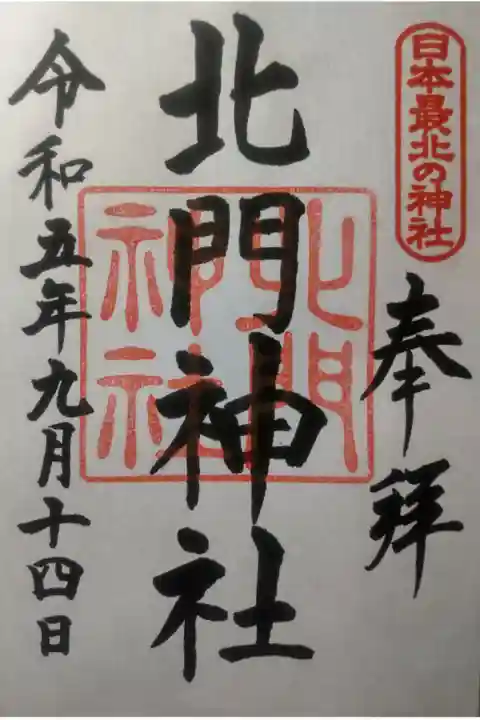 日本最北の神社
奉拝
北門神社
北門
神社
令和五年九月十四日